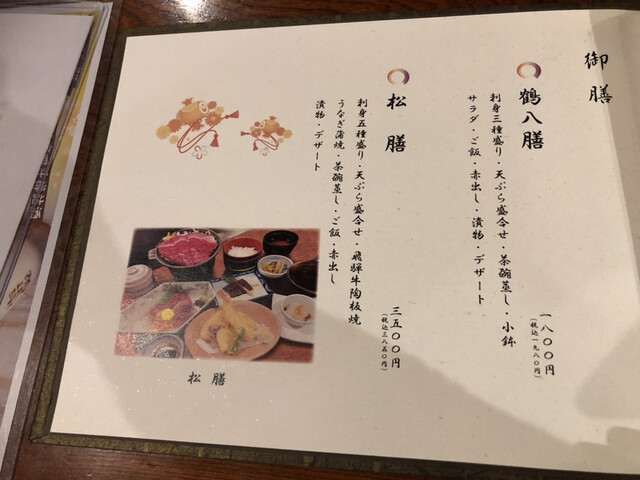 御膳
鶴八膳
刺身三種盛り・天ぷら盛合せ・茶碗蒸し・小鉢
サラダ・ご飯・赤出し・漬物・デザート
一八〇〇円
(税込一九八〇円)
松膳
刺身五種盛り・天ぷら盛合せ・飛騨牛陶板焼
うなぎ蒲焼・茶碗蒸し・ご飯・赤出し
漬物・デザート
三五〇〇円
(税込三八五〇円)
松膳